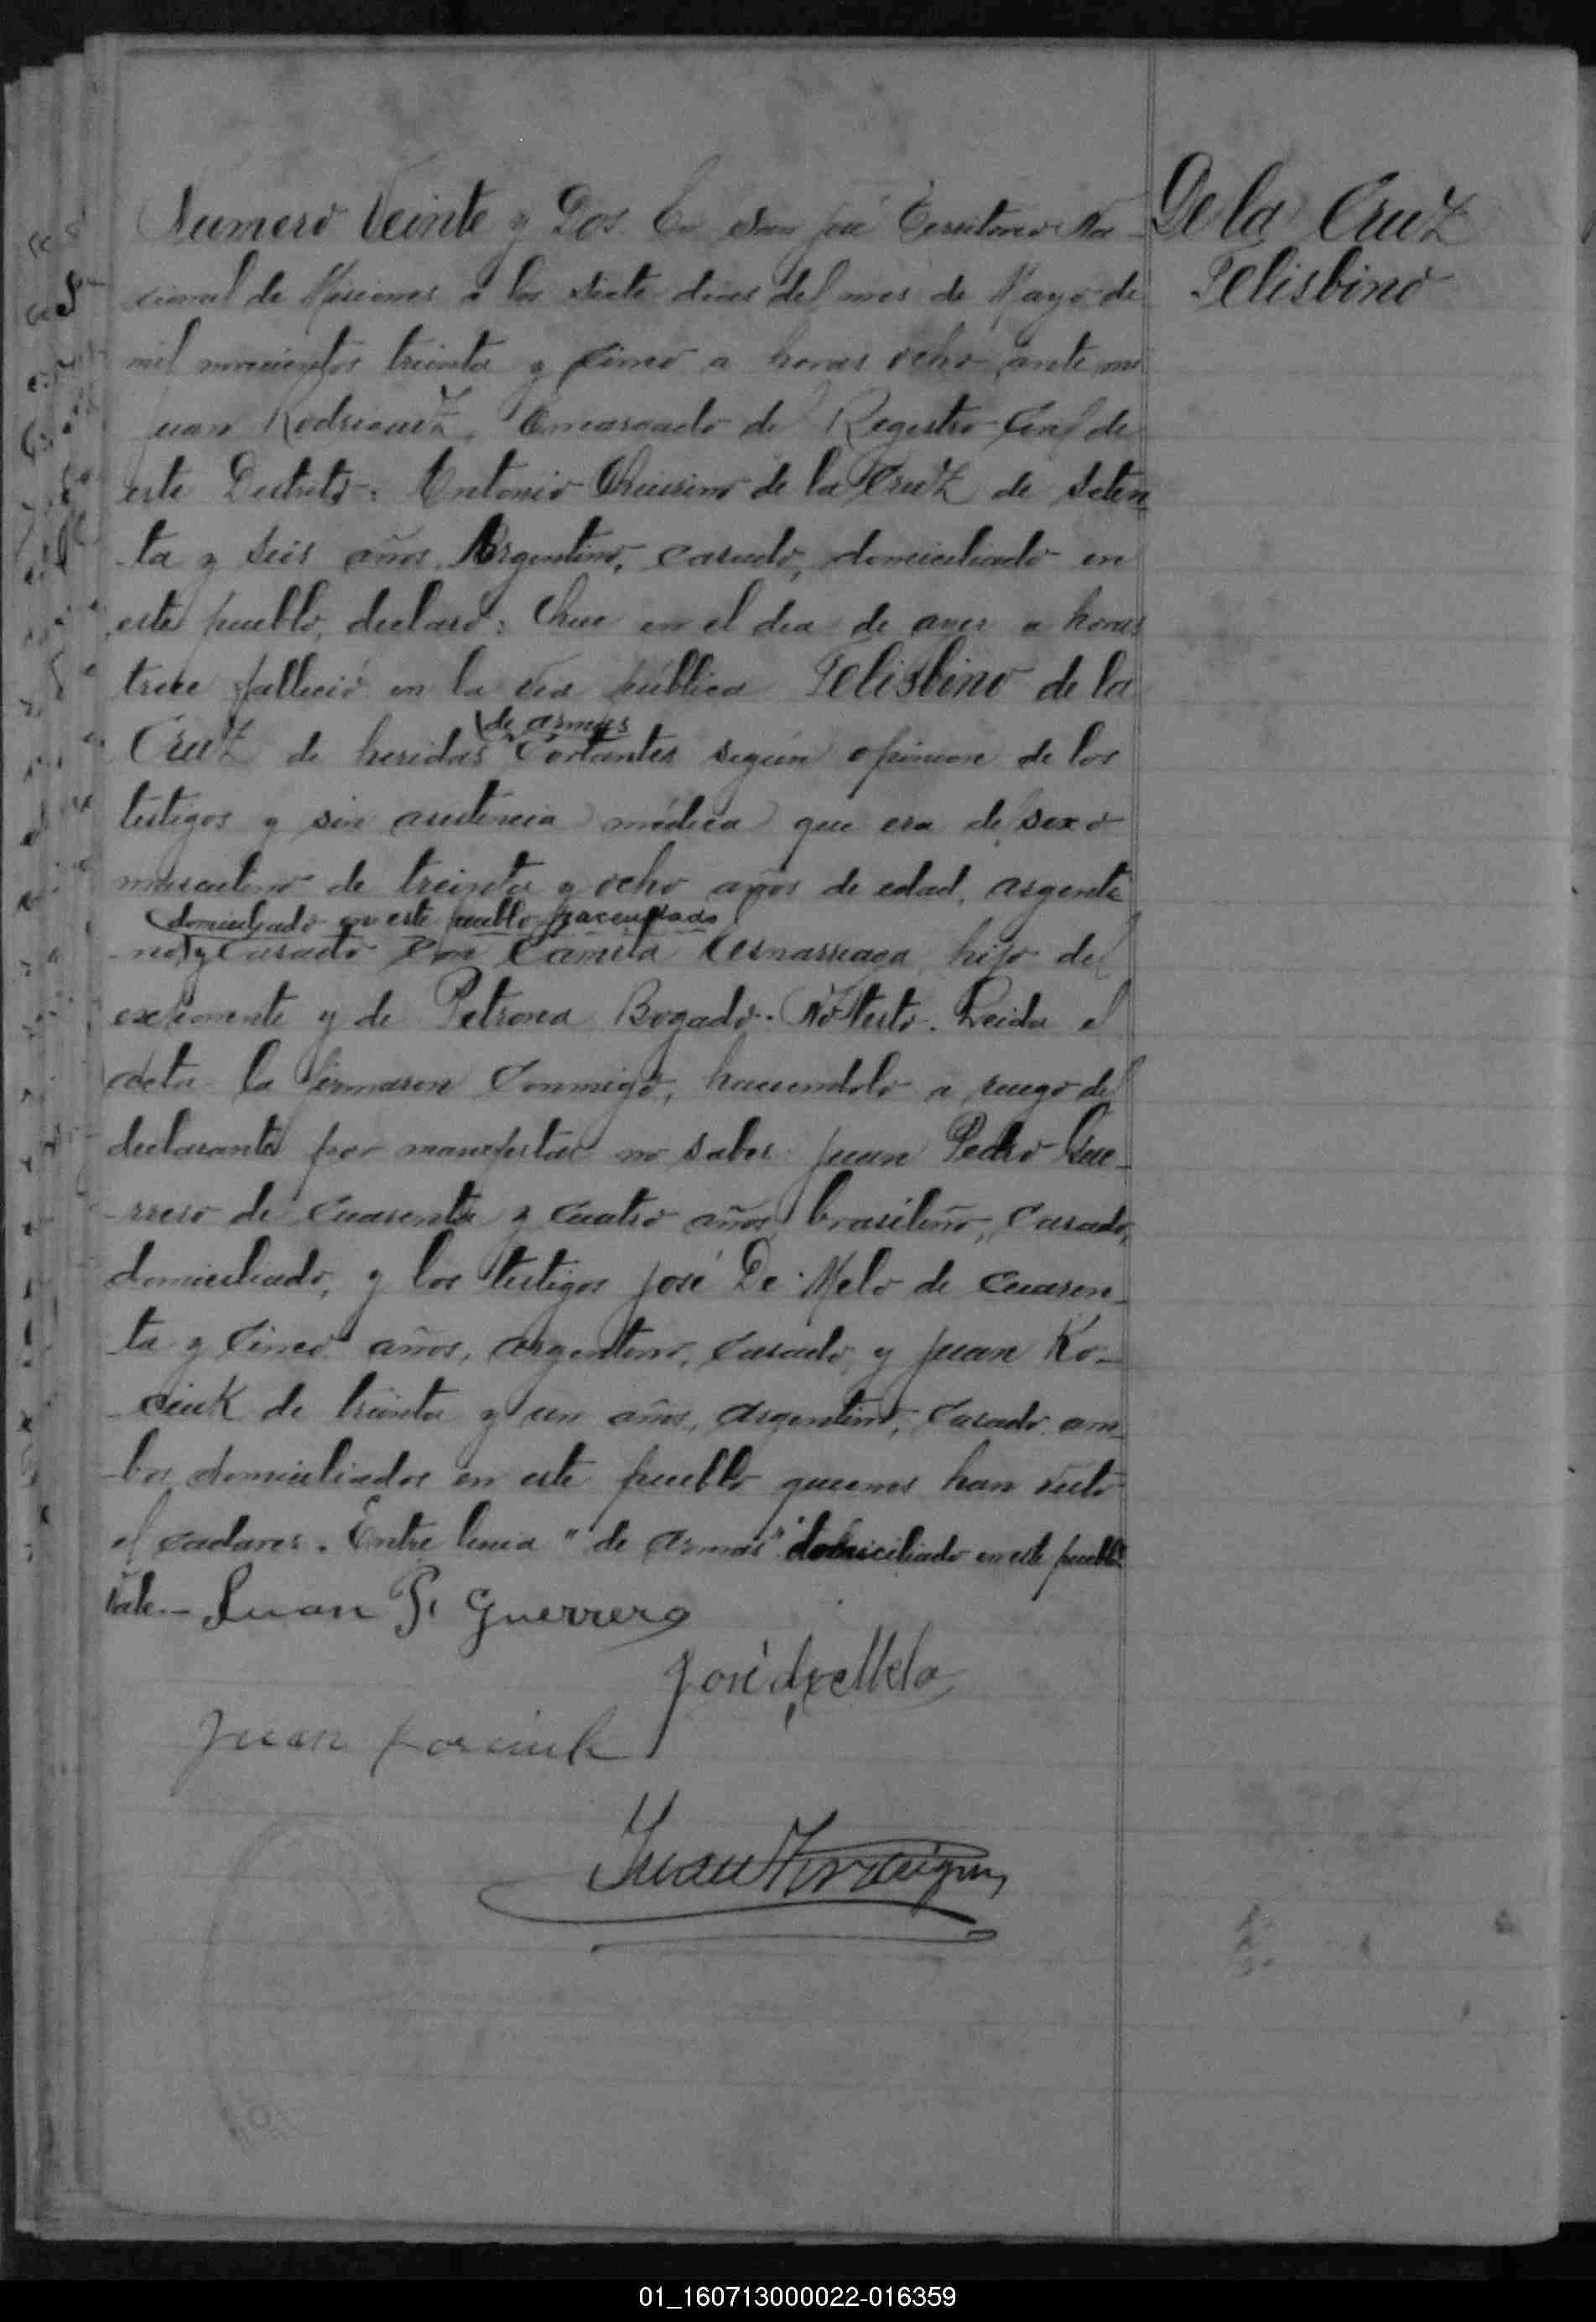 De la Cruz
Felisbino
Numero Veinte y Dos. En San José Territorio Na-
cional de Misiones a los siete dias del mes de Mayo de
mil novecientos treinta y cinco a horas ocho ante mi
Juan Rodriguez, Encargado de Registro Civil de
este Distrito: Antonio de la Cruz de Seten
ta y seis años, Argentino, casado, domiciliado en
este pueblo, declaró: Que en el dia de ayer a horas
trece falleció en la via pública Felisbino de la
de armas
Cruz de heridas Cortantes según opinion de los
testigos y sin asistencia médica que era de sexo
masculino de treinta y ocho años de edad, argenti
domiciliado en este pueblo
no, y Casado con Camila hijo del
exponente y de Petrona Bogado. No testó. Leida el
acta la firmaron Conmigo, haciendolo a ruego del
declarante por manifestar no saber Juan Pedro Gue-
rrero de Cuarenta y Cuatro años, brasileño, Casado,
domiciliado, y los testigos José De Melo de Cuaren-
ta y Cinco años, argentino, Casado, y Juan Ko-
ciuk de treinta y un años, Argentino, Casado am
bos domiciliados en este pueblo quienes han visto
el cadaver. Entre linia "de armas" "domiciliado en este pueblo"
Vale.- Juan P. Guerrero
José de Melo
Juan Kociuk
Juan Rodriguez
01_160713000022-016359